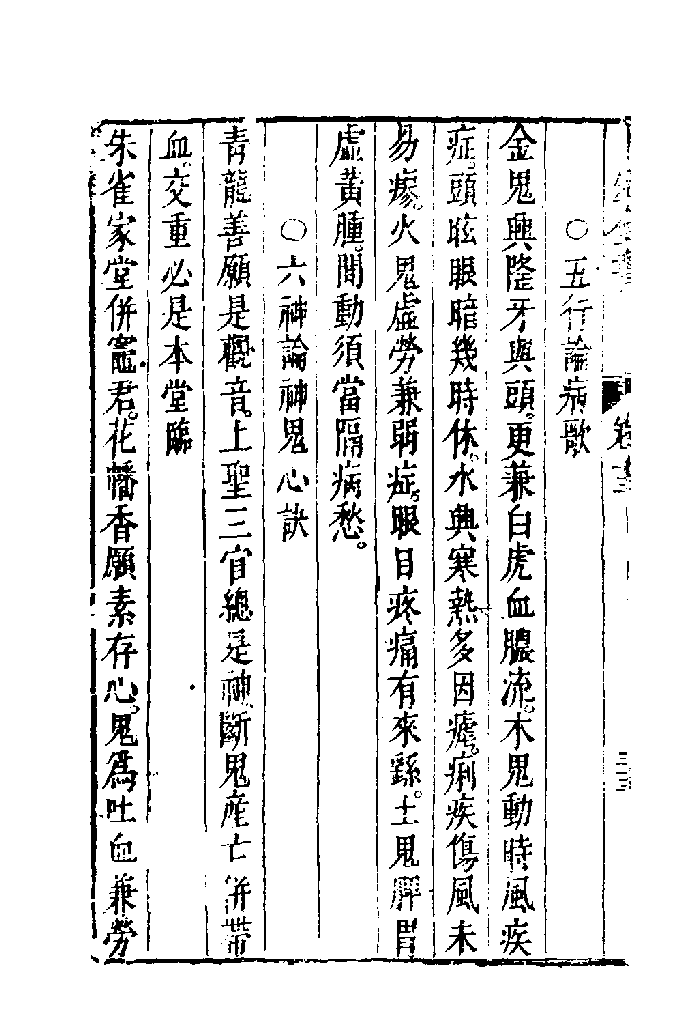 卷
○五行論病歌
金鬼興隆牙與頭。更兼白虎血膿流。木鬼動時風疾
症。頭眩眼暗幾時休。水興寒熱多因瘧。痢疾傷風未
易瘳。火鬼虛勞兼弱症。眼目疼痛有來繇。土鬼脾胃
虛黃腫。間動須當隔病愁。
○六神論神鬼心訣
青龍善願是觀音。上聖三官總是神。斷鬼產亡併帶
血。交重必是本堂臨
朱雀家堂併竈君。花幡香願素存心。鬼爲吐血兼勞